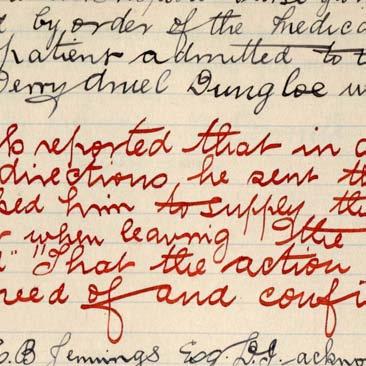 d by order of the Medica
patient admitted to t
Derrydruel Dungloe w
reported that in a
directions, he sent th
ked him to supply the
when leaving "the
" "That the action
reed of and confi
C. B Jennings Esq. L.I. ackno